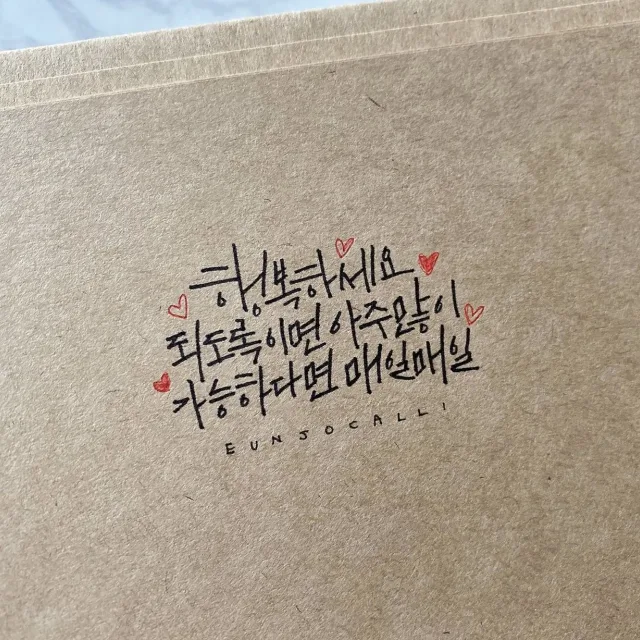 행복하세요
되도록이면 아주많이
가능하다면 매일매일
EUNJOCALLI